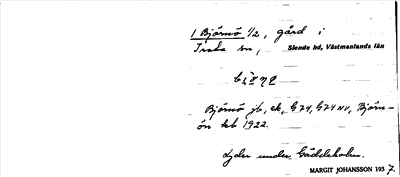 1 Björnö 1/2, gård i
Irsta sn, Siende hd, Västmanlands län
Björnö jb, ek, G74, G74 NV, Björn-
ön kb 1922.
Lyder under Gäddeholm.
MARGIT JOHANSSON 1937.